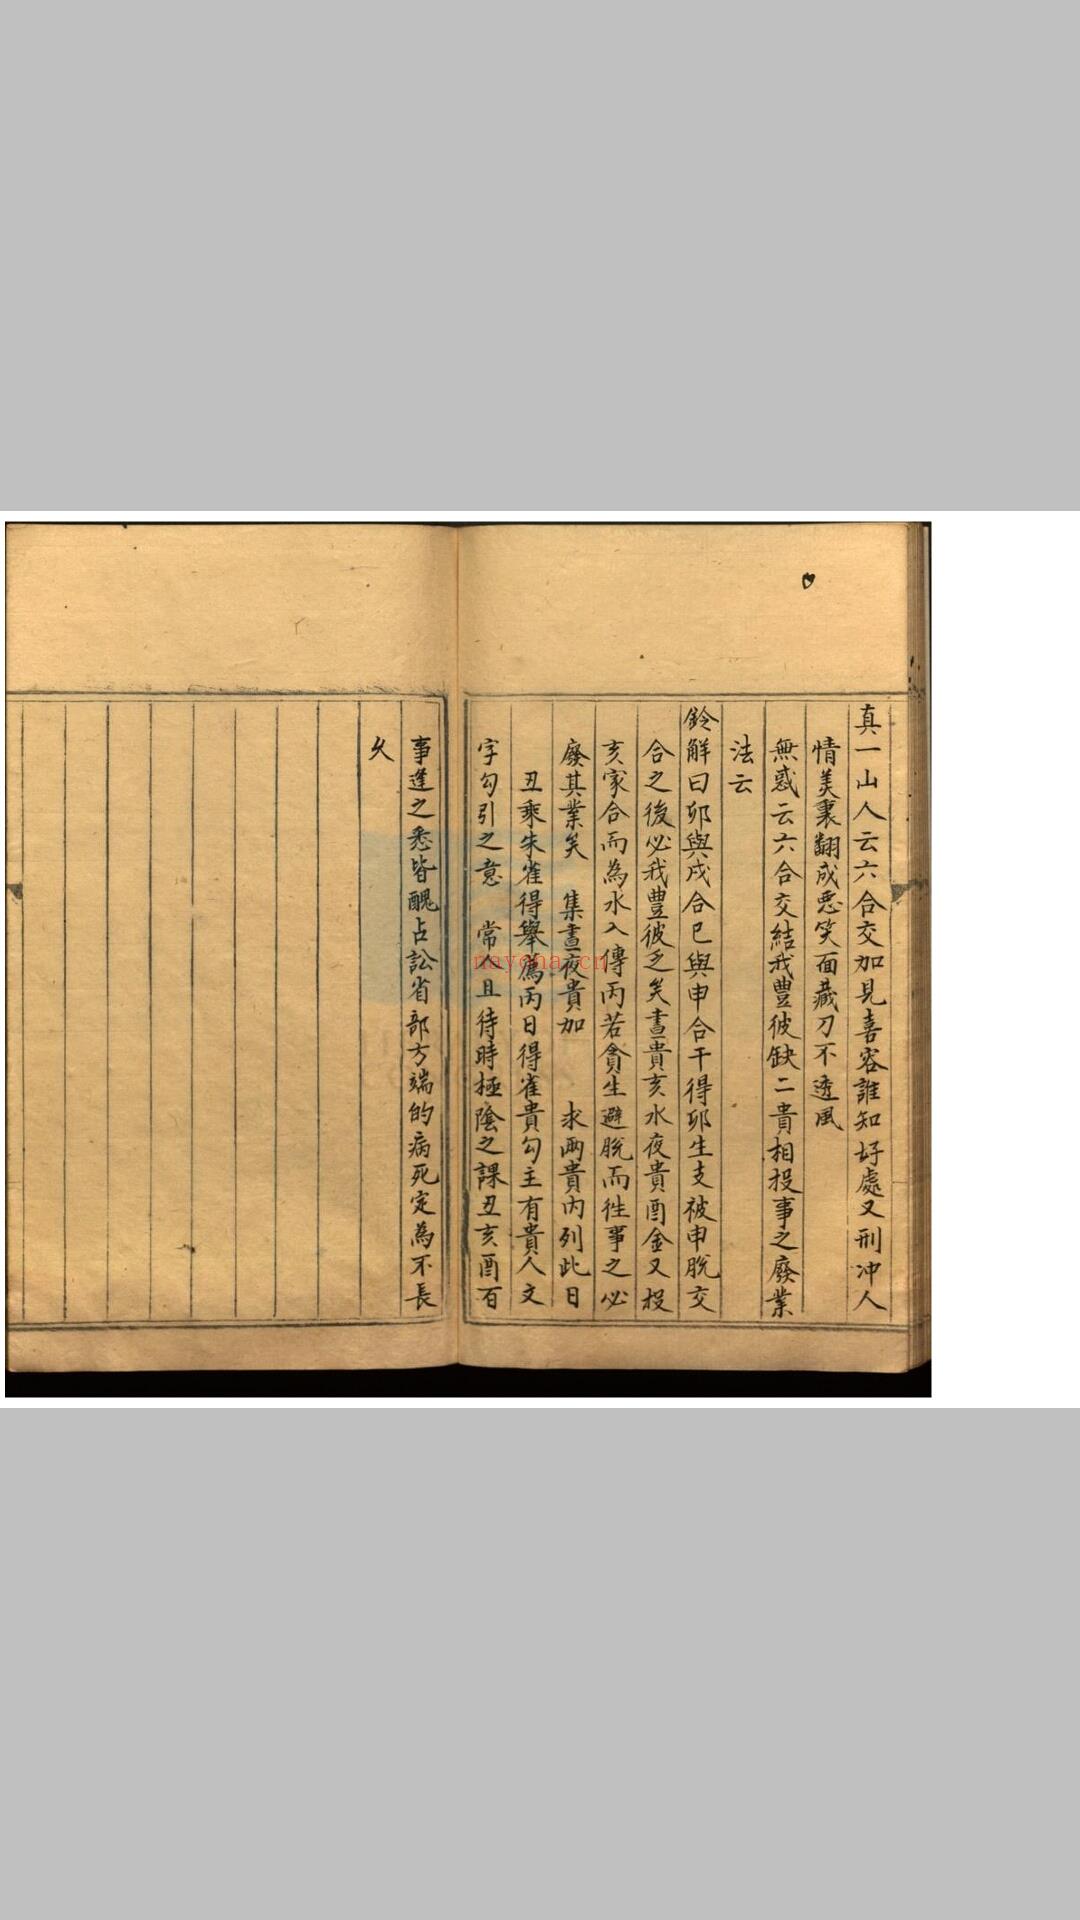 真一山人云六合交加見喜容誰知好處又刑冲人
情美裏翻成惡笑面藏刀不透風
無惑云六合交結我豐彼缺二貴相投事之廢業
法云
鈐解曰卯與戌合巳與申合干得卯生支被申脫交
合之後必我豐彼乏矣晝貴亥水夜貴酉金又投
亥家合而為水入傳丙若貪生避脫而徃事之必
廢其業矣　集晝夜貴加　求兩貴内列此日
丑乘朱雀得舉薦丙日得雀貴勾主有貴人文
字勾引之意　常人且待時極陰之課丑亥酉百
事逢之悉皆醜占訟省部方端的病死定為不長
久
nayona.cn